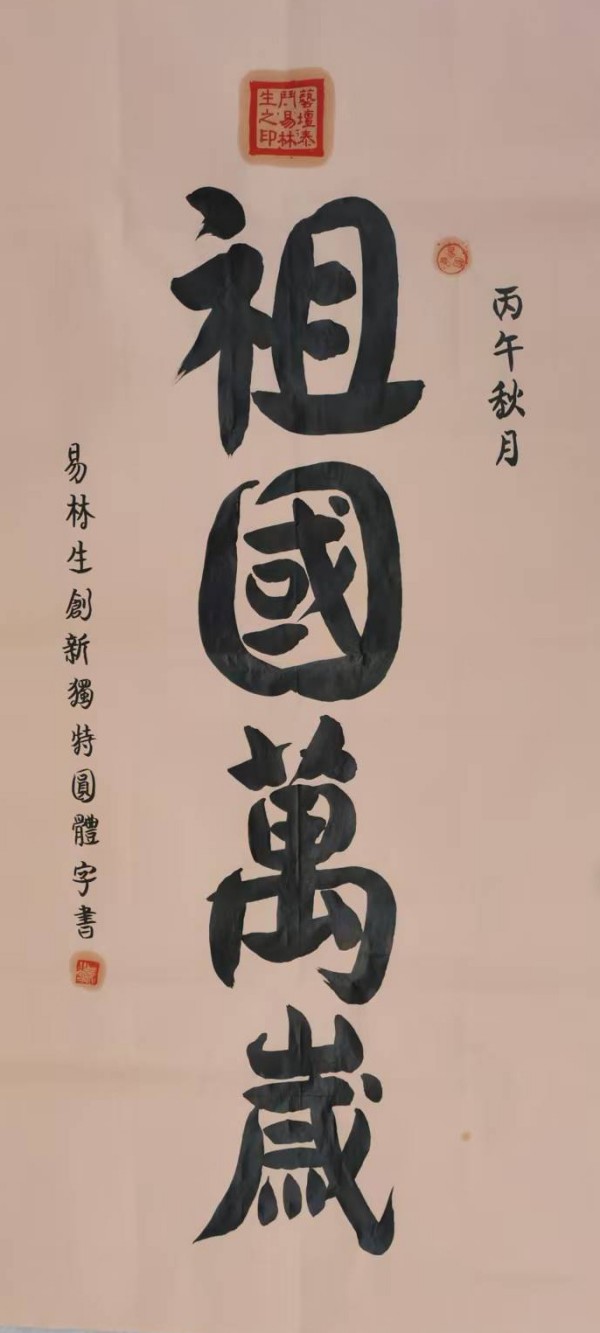 藝壇泰
鬥易林
生之印
丙午秋月
祖國萬歲
易林生創新獨特圓體字書